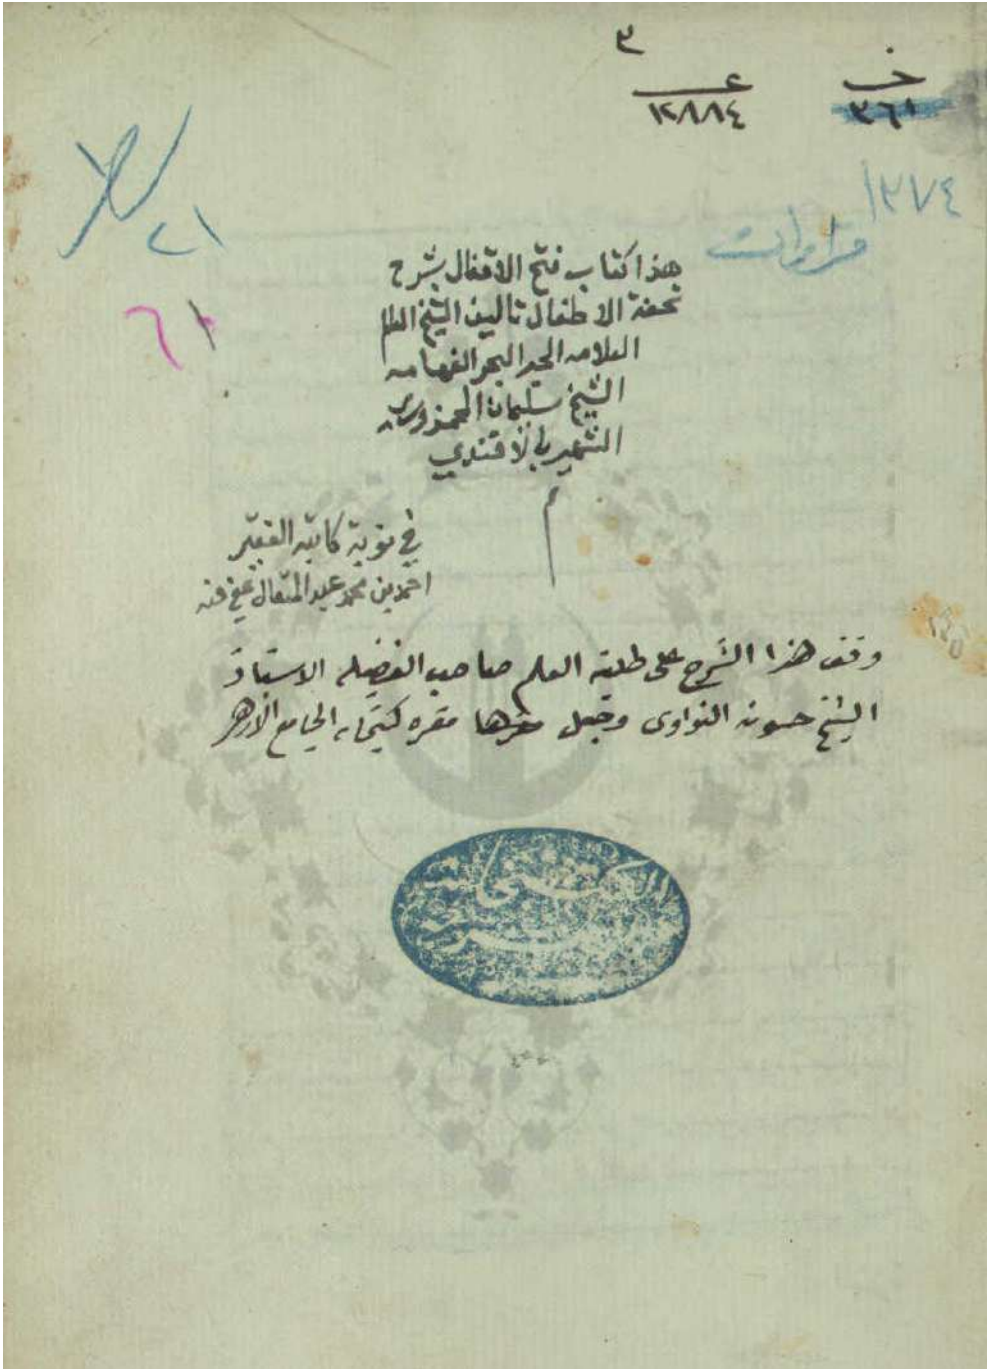 ٣
خـ ٣٦١
عـ ١٢٨٨٤
١٣٧٤
قراءات
٢١
٦١
هذا كتاب فتح الاقفال بشرح
تحفة الاطفال تاليف الشيخ
العلامه الحبر البحر الفهامه
الشيخ سليمان الجمزوري
الشهير بالافندي
م
في نوبة كاتبه الفقير
احمد بن محمد عبد المتعال عفي عنه
وقف هذا الشرح على طلبة العلم صاحب الفضيله الاستاذ
الشيخ حسونه النواوى وجعل مقرها مقره كتبخانه الجامع الازهر